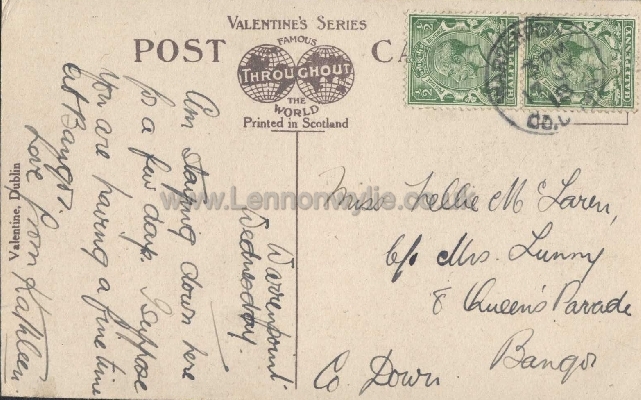 VALENTINE'S SERIES
POST CA
FAMOUS
THROUGHOUT
THE
WORLD
Printed in Scotland
½ HALFPENNY ½
HALFPENNY
Warrenpoint
Wednesday.
Am staying down here
for a few days. I suppose
you are having a fine time
at Bangor.
Love from Kathleen.
Miss Nellie McLaren,
c/o Mrs. Lunny
8 Queen's Parade
Bangor
Co Down.
Valentine, Dublin
www.Lennonwylie.co.uk